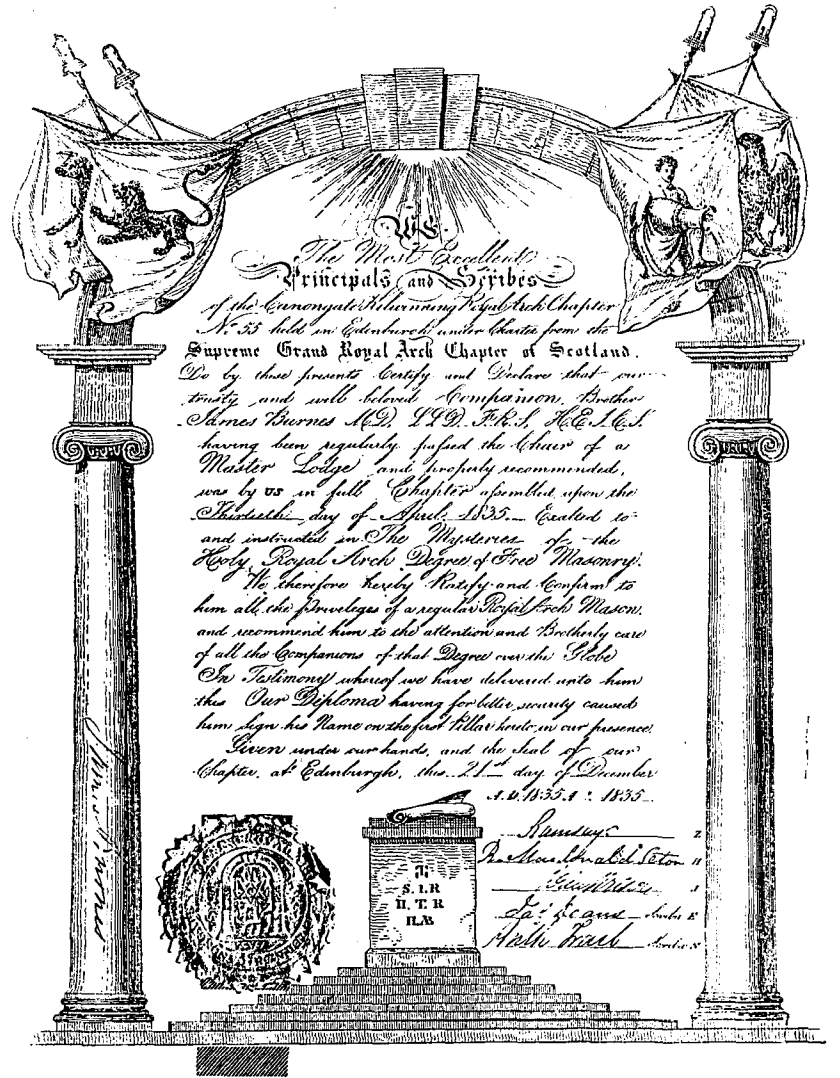 We
The Most Excellent
Principals and Scribes
of the Canongate Kilwinning Royal Arch Chapter
No. 55 held in Edinburgh under Charter from the
Supreme Grand Royal Arch Chapter of Scotland.
Do by these presents Certify and Declare that our
trusty and well beloved Companion, Brother
James Burnes M.D, L.L.D, F.R.S, H.E.I.C.S.
having been regularly passed the Chair of a
Master Lodge and properly recommended,
was by us in full Chapter assembled upon the
Thirtieth day of April 1835 Exalted to
and instructed in The Mysteries of the
Holy Royal Arch Degree of Free Masonry.
We therefore hereby Ratify and Confirm to
him all the privileges of a regular Royal Arch Mason,
and recommend him to the attention and Brotherly care
of all the Companions of that Degree over the Globe
In Testimony whereof we have delivered unto him
this Our Diploma having for better security caused
him sign his Name on the first Pillar hereto in our presence.
Given under our hands, and the Seal of our
Chapter, at Edinburgh, this 21st day of December
A.D. 1835 1835
Ramsay Z
R. Macdonald Seton H
J
Jas. Deans Scribe E
Scribe N
James Burnes
S. I. R
H. T. R